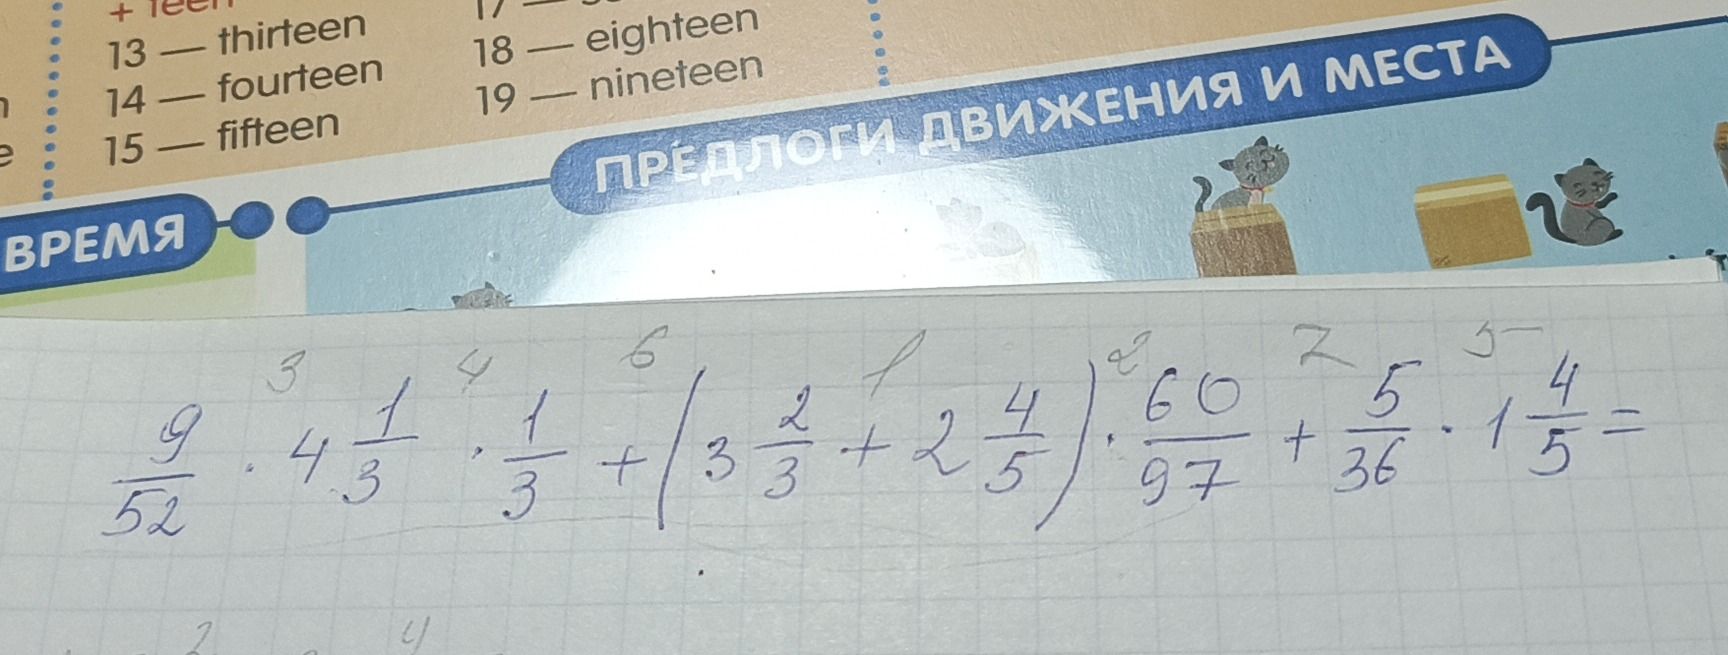 + teen
13 — thirteen
14 — fourteen
15 — fifteen
18 — eighteen
19 — nineteen
ВРЕМЯ
ПРЕДЛОГИ ДВИЖЕНИЯ И МЕСТА
3 4 6 1 2 7 5
9/52 · 4 1/3 · 1/3 + (3 2/3 + 2 4/5) · 60/97 + 5/36 · 1 4/5 =
2 4